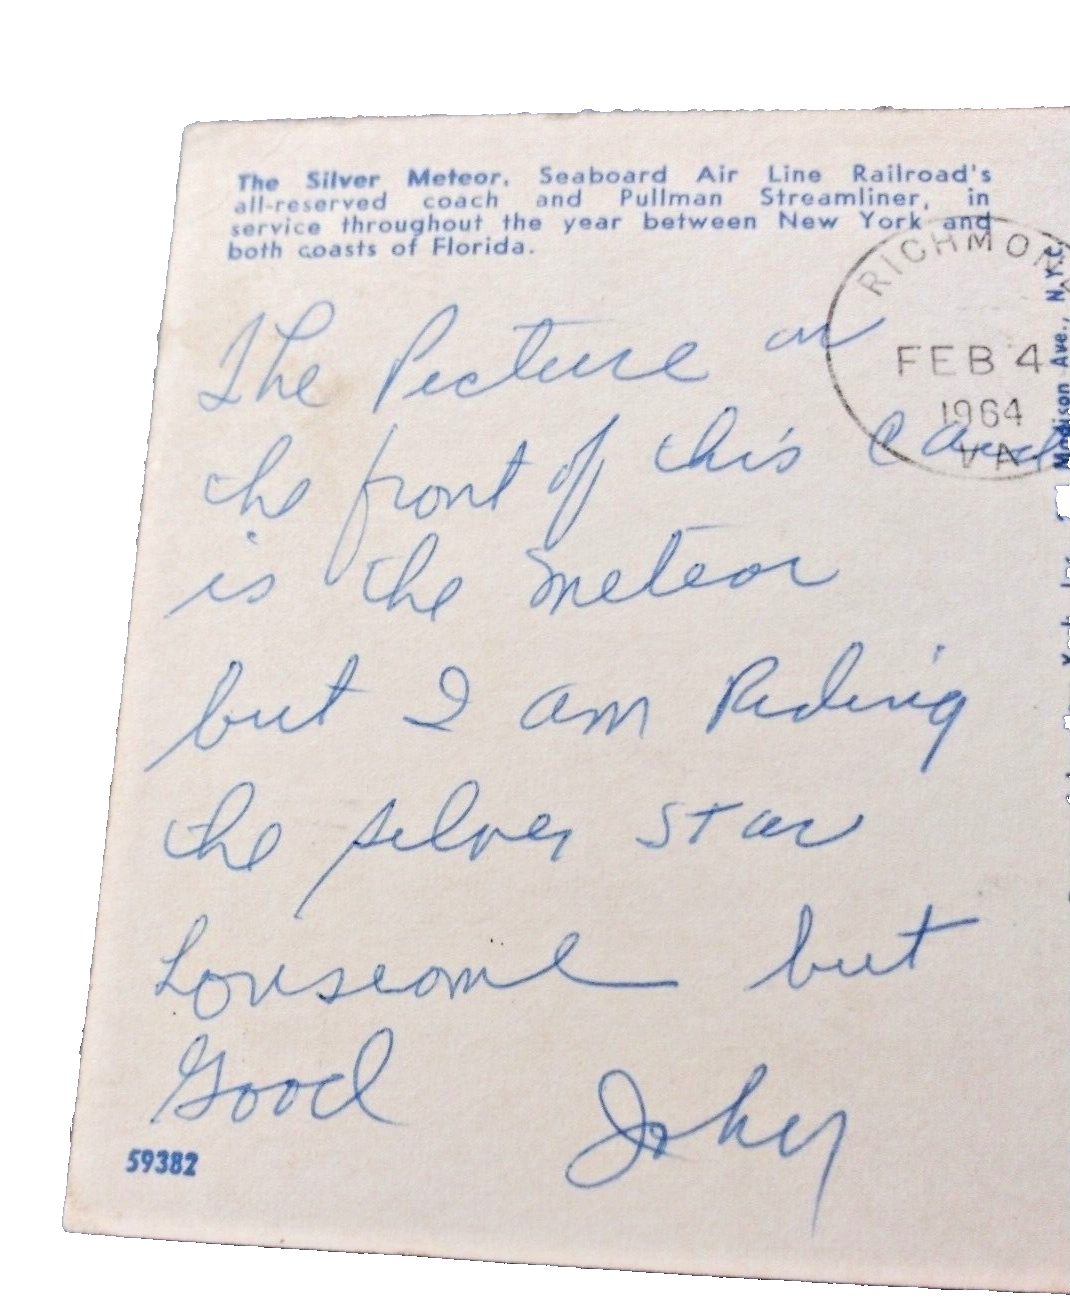 The Silver Meteor, Seaboard Air Line Railroad's
all-reserved coach and Pullman Streamliner, in
service throughout the year between New York and
both coasts of Florida.
RICHMON
FEB 4
1964
VA
The Picture on
the front of this Card
is the Meteor
but I am Riding
the silver Star
Lonsesome but
Good
59382
Madison Ave., N.Y.C.